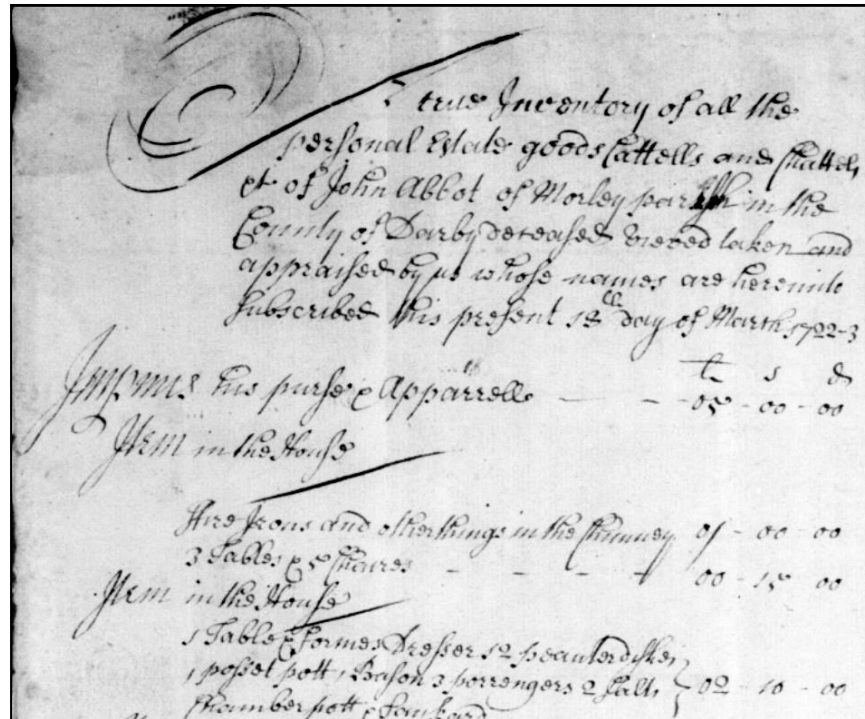 A true Inventory of all the
personal Estate goods Cattells and Chattels
et of John Abbot of Morley parish in the
County of Darby deceased viewed taken and
appraised by us whose names are hereunto
subscribed this present 18th day of March 1722-3
£ s d
Imprimis his purse & Apparrell - - 05 - 00 - 00
Item in the House
Fire Irons and other things in the Chimney 01 - 00 - 00
3 Tables & 5 Chaires - - - - 00 - 15 - 00
Item in the House
1 Table & formes Dresser 12 peauter dishes
1 posset pott 1 Bason 3 porrengers 2 Salts } 02 - 10 - 00
Chamber pott & Tankard